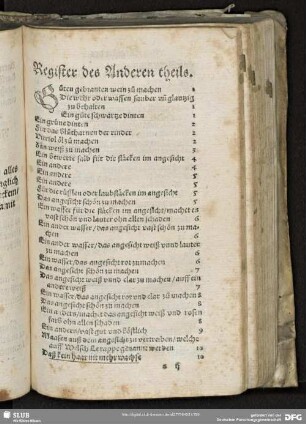 Register des Anderen theils.
Gůten gebranten wein zů machen 1
Die wehr oder waffen sauber vñ glantzig
zu behalten 1
Ein gůte schwartze dinten 1
Ein grüne dinten 2
Für das Blůtharnen der rinder 2
Vitriol öl zů machen 2
Ein weiß zů machen 3
Ein bewerte salb für die flecken im angesicht 4
Ein andere 4
Ein andere 5
Ein andere 5
Für die rüslen oder laubflecken im angesicht 5
Das angesicht schön zu machen 5
Ein wasser für die flecken im angesicht/machet es
vast schön vnd lauter ohn allen schaden 6
Ein ander wasser/das angesicht vast schön zu ma-
chen 6
Ein ander wasser/das angesicht weiß vnnd lauter
zu machen 6
Ein wasser/das angesicht rot zu machen 6
Das angesicht schön zu machen 7
Das angesicht weiß vnnd clar zu machen/auff ein
andere weiß 7
Ein wasser/das angesicht rot vnd clar zů machen 8
Das angesicht schön zu machen 8
Ein anders/machet das angesicht weiß vnd rosen
farb ohn allen schaden 8
Ein anders/vast gut vnd köstlich 9
auff Welsch genannt werden
Daß kein haar nit mehr wachse 10
SLUB
DFG